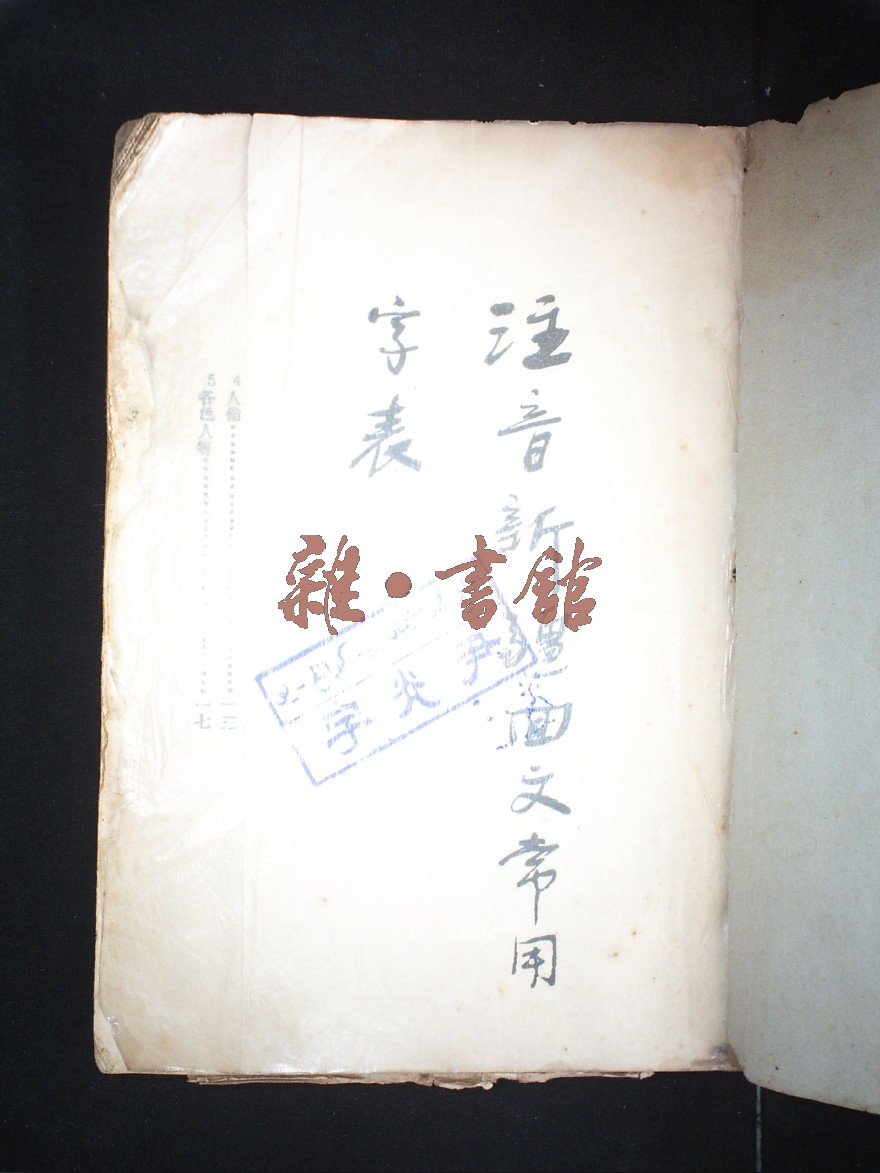 注音新疆回文常用
字表
雜·書館
4 人倫 一三
5 各色人等 一七